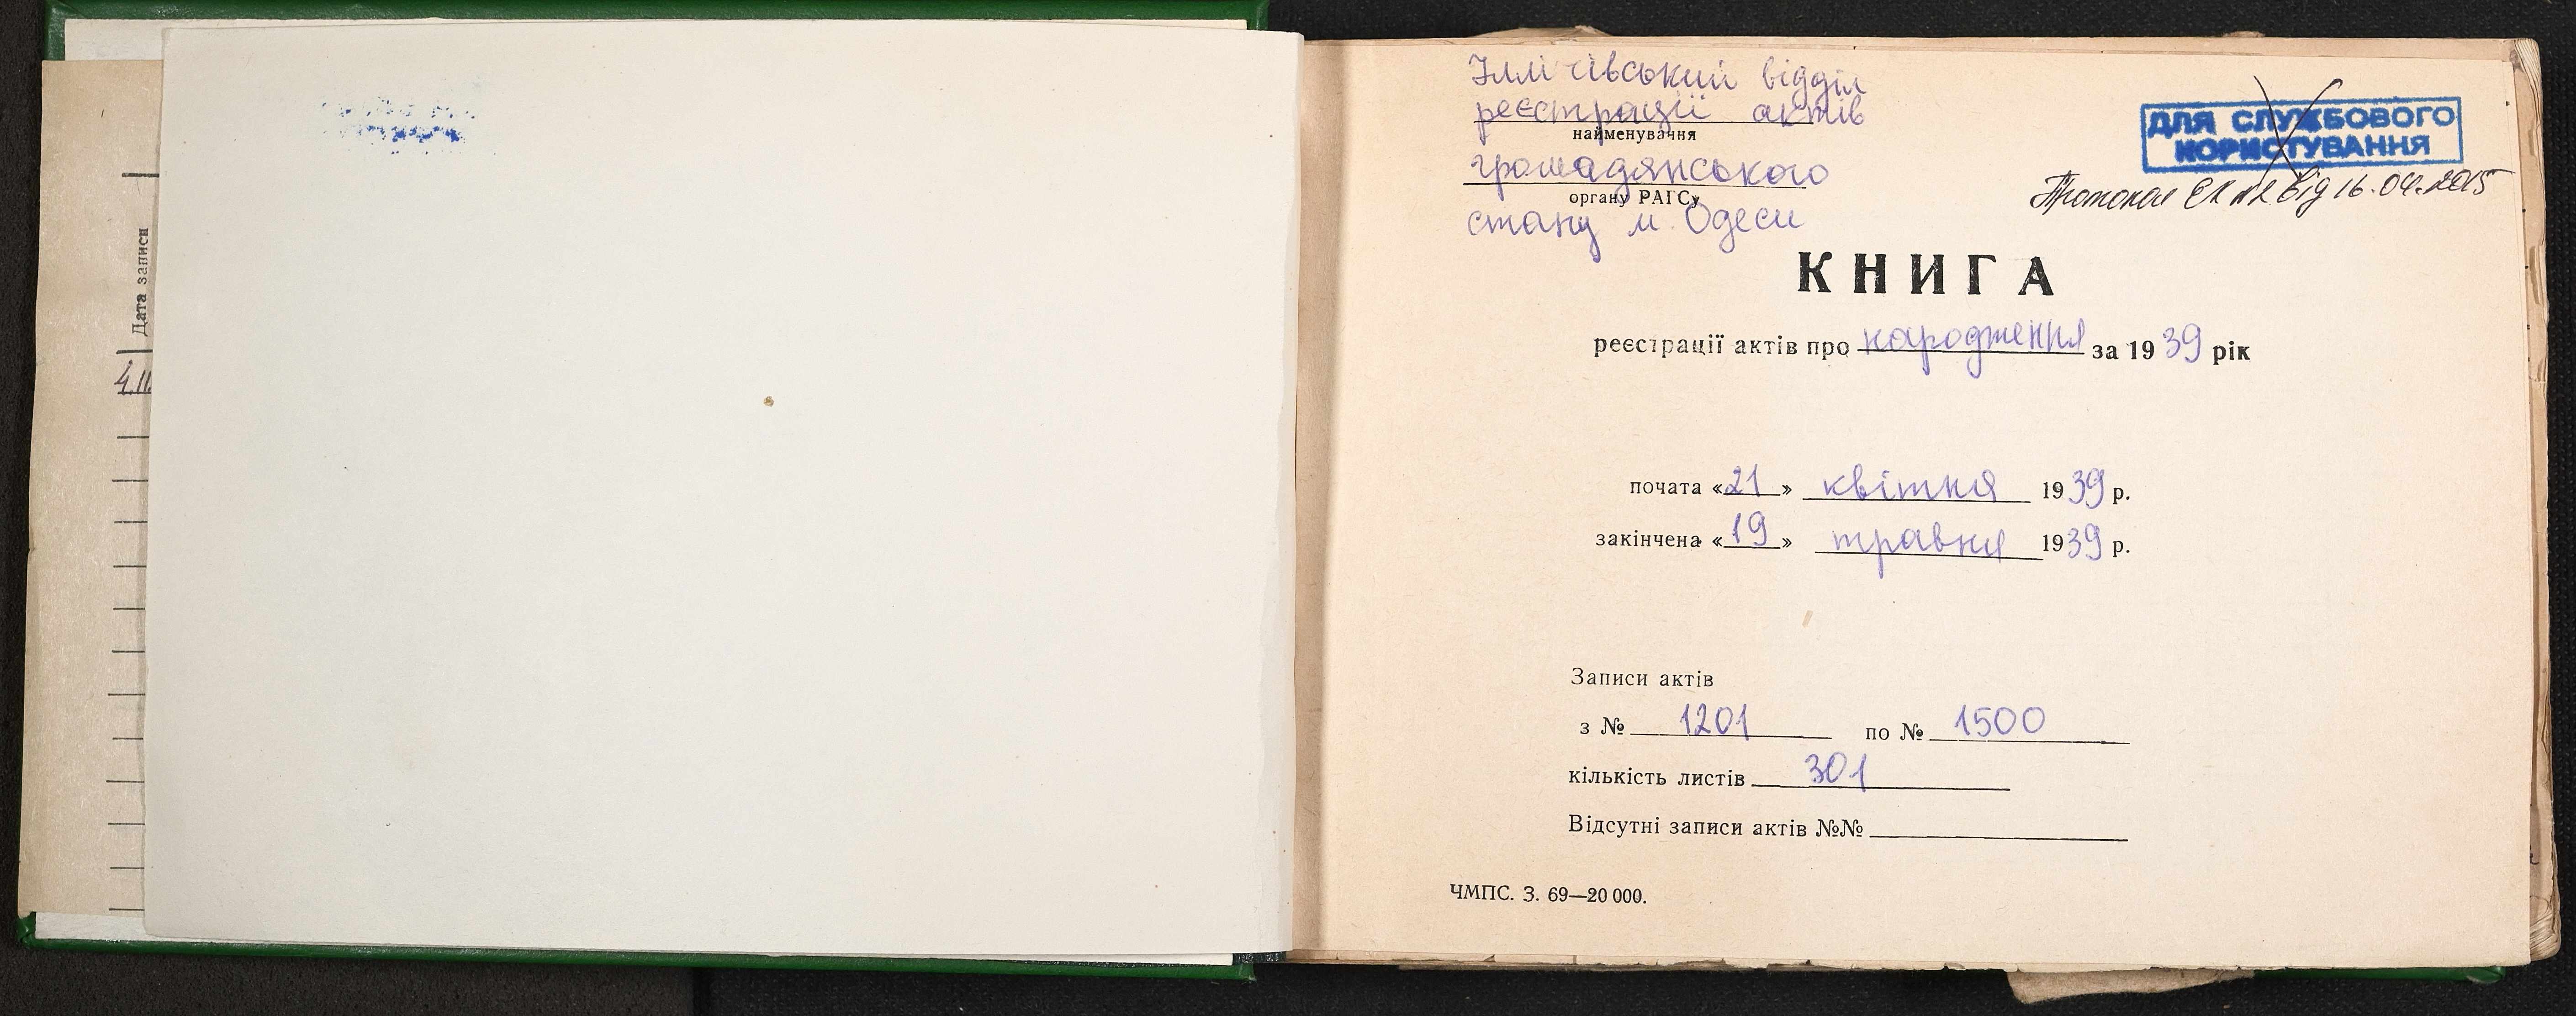 Дата записи
4.II.
Іллічівський відділ
реєстрації актів
найменування
громадянського
органу РАГСу
стану м. Одеси
ДЛЯ СЛУЖБОВОГО
КОРИСТУВАННЯ
Протокол ЕК №2 від 16.04.2015
КНИГА
реєстрації актів про народження за 1939 рік
почата «21» квітня 1939 р.
закінчена «19» травня 1939 р.
Записи актів
з № 1201 по № 1500
кількість листів 301
Відсутні записи актів №№
ЧМПС. З. 69—20 000.